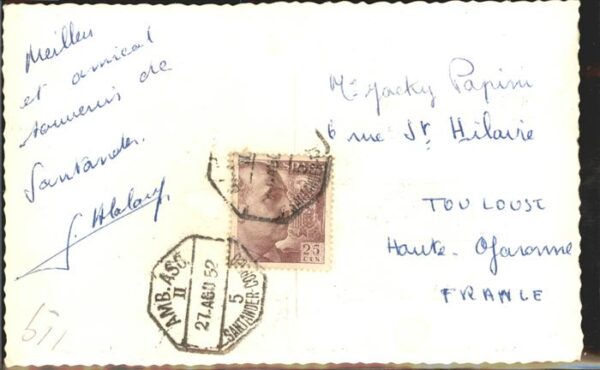 Meilleu
et amical
souvenir de
Santander.
Mr Jacky Papini
6 rue St Hilaire
TOULOUSE
Haute-Garonne
FRANCE
25
CTS
AMB. ASC.
II
27.AGO 52
5
SANTANDER-CORREOS